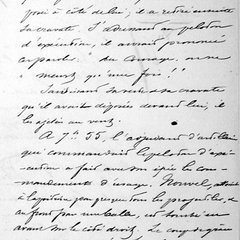 posé à côté de lui; il a retiré ensuite
sa cravate. S'adressant au peloton
d'exécution, il aurait prononcé
ces paroles: "du courage, on ne
meurt qu'une fois!"
Saisissant sa veste et sa cravate
qu'il avait déposées devant lui, il
les a jetées au vent.
A 7h 55, l'adjudant d'artillerie
qui commandait le peloton d'exé-
cution a fait avec son épée les com-
mandements d'usage. Nouvel,
à la poitrine par presque tous les projectiles, et
au front par une balle, est tombé en
avant sur le côté droit. Le coup de grâce